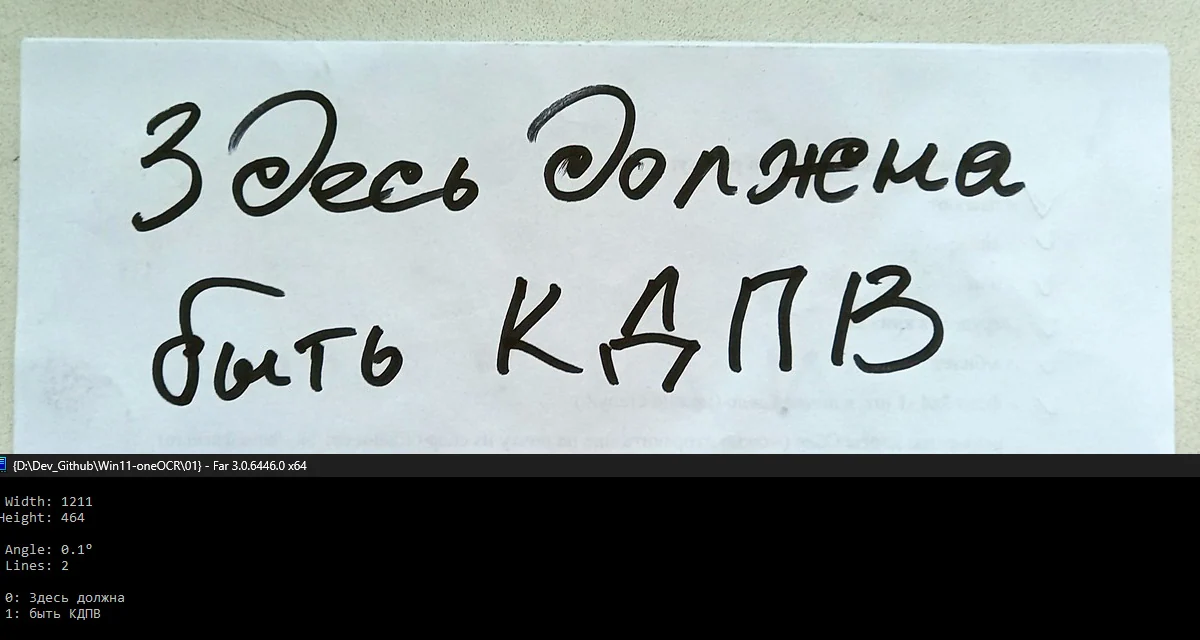 Здесь должна
быть КДПВ
{D:\Dev_Github\Win11-oneOCR\01} - Far 3.0.6446.0 x64
Width: 1211
Height: 464
Angle: 0.1°
Lines: 2
0: Здесь должна
1: быть КДПВ